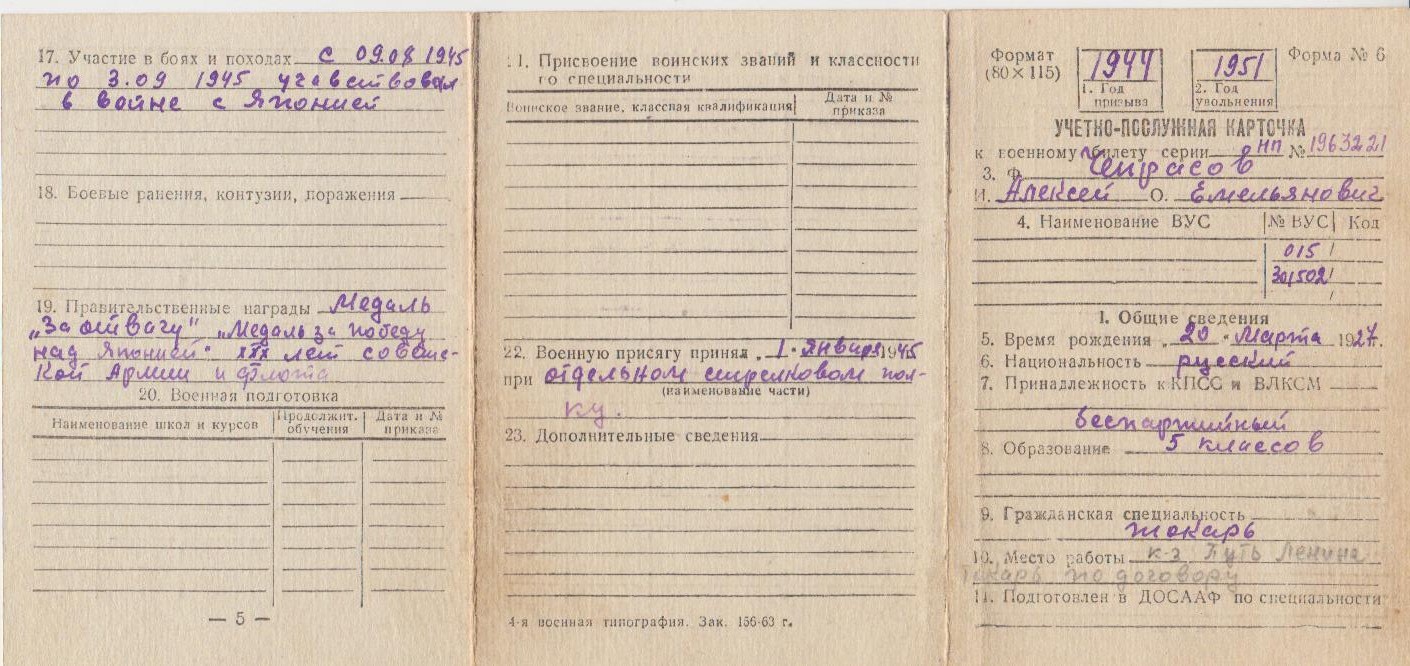 17. Участие в боях и походах с 09.08 1945
по 3.09 1945 учавствовал
в войне с Японией
18. Боевые ранения, контузии, поражения
19. Правительственные награды Медаль
„За отвагу" „Медаль за победу
над Японией" XXX лет советс-
кой Армии и флота
20. Военная подготовка
Наименование школ и курсов
Продолжит. обучения
Дата и № приказа
— 5 —
21. Присвоение воинских званий и классности
по специальности
Воинское звание, классная квалификация
Дата и №
приказа
22. Военную присягу принял „1" января 1945
при отдельном стрелковом пол-
(наименование части)
ку.
23. Дополнительные сведения
4-я военная типография. Зак. 156-63 г.
Формат
(80×115)
1944
1. Год
призыва
1951
2. Год
увольнения
Форма № 6
УЧЕТНО-ПОСЛУЖНАЯ КАРТОЧКА
к военному билету серии НП № 1963221
3. Ф. Чепрасов
И. Алексей О. Емельянович
4. Наименование ВУС № ВУС Код
015
301502
1. Общие сведения
5. Время рождения „20" Марта 1927г.
6. Национальность русский
7. Принадлежность к КПСС и ВЛКСМ
беспартийный
8. Образование 5 классов
9. Гражданская специальность
токарь
10. Место работы к-з Путь Ленина
токарь по договору
11. Подготовлен в ДОСААФ по специальности